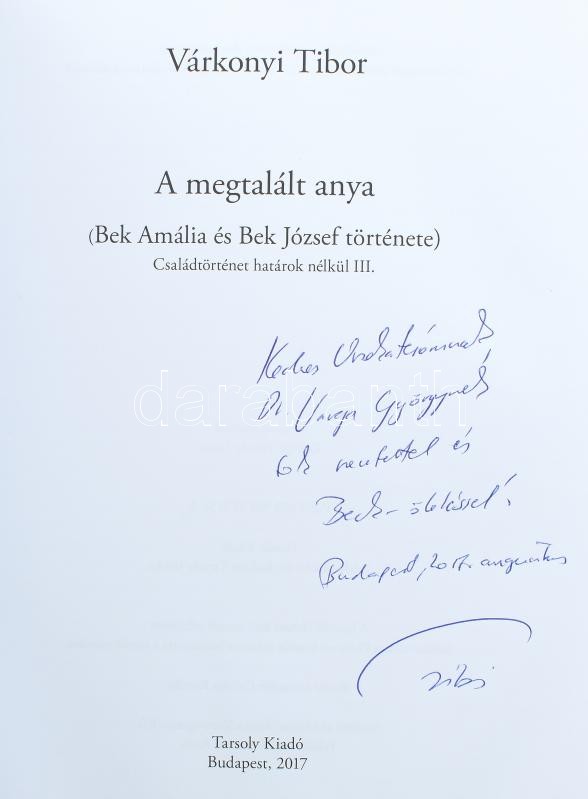 Várkonyi Tibor
A megtalált anya
(Bek Amália és Bek József története)
Családtörténet határok nélkül III.
Kedves
Dr. Varga Györgynek
darabanth
és
Beck-öleléssel!
Budapest, 2017. augusztus
Tibi
Tarsoly Kiadó
Budapest, 2017